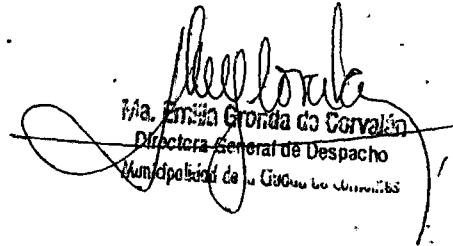 Ma. Emilia Gronda de Corvalán
Directora General de Despacho
Municipalidad de la Ciudad de Corrientes